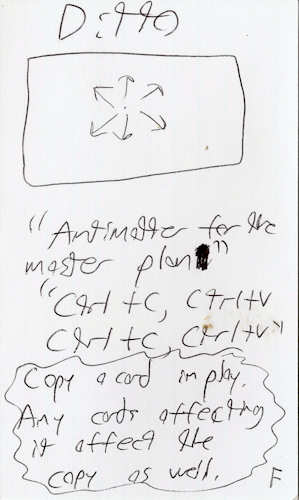 Ditto
"Antimatter for the
master plan"
"Ctrl+C, Ctrl+V
Ctrl+C, Ctrl+V"
Copy a card in play.
Any cards affecting
it affect the
copy as well.
F